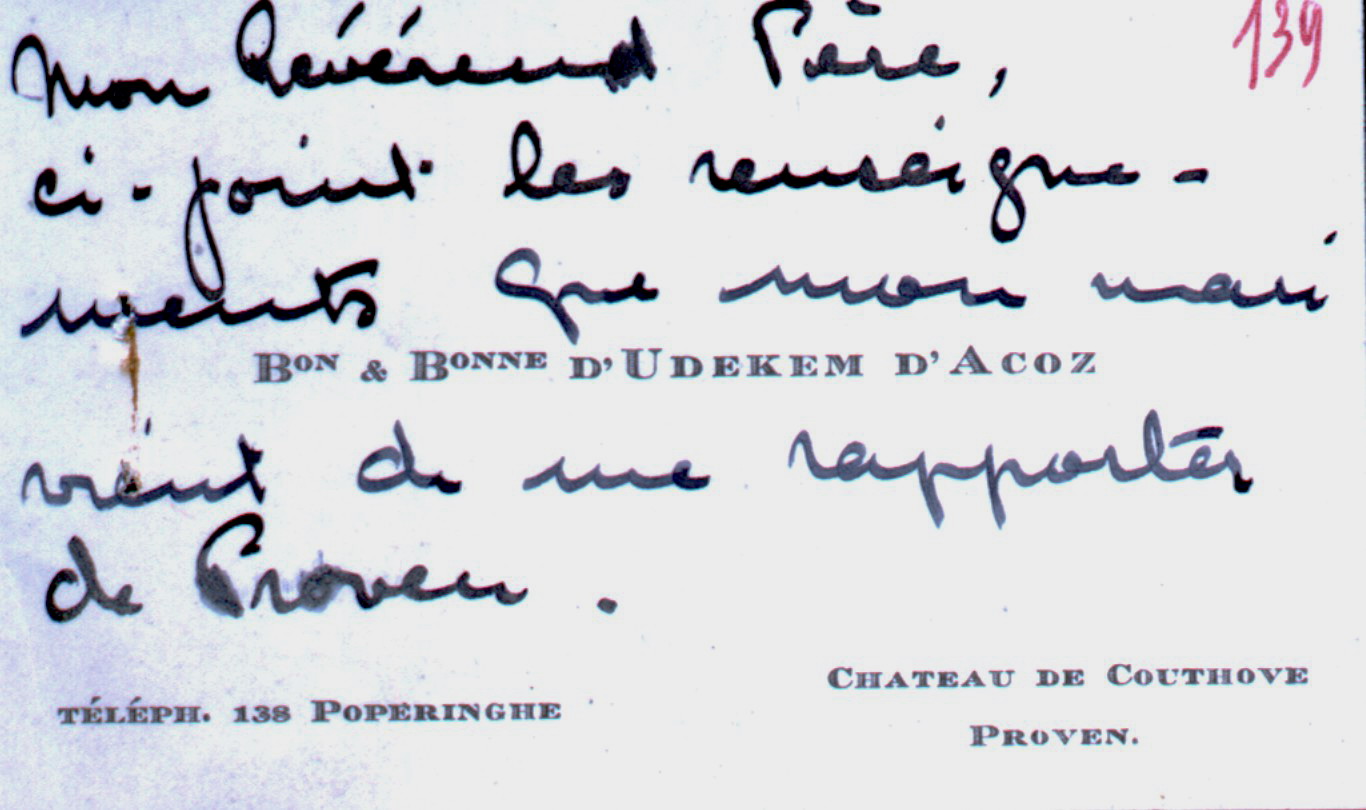 139
Mon Révérend Père,
ci-joint les renseigne-
ments que mon mari
BON & BONNE D'UDEKEM D'ACOZ
vient de me rapporter
de Proven.
TÉLÉPH. 138 POPERINGHE
CHATEAU DE COUTHOVE
PROVEN.